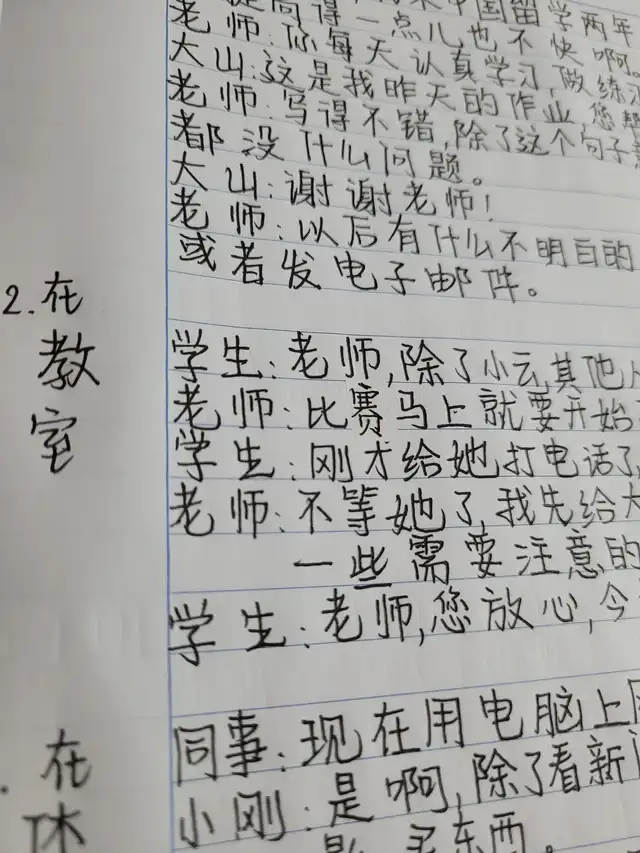 得一点儿也不快啊。
老师:你每天认真学习,做练习
大山:这是我昨天的作业,您帮
老师:写得不错,除了这个句子
都没什么问题。
大山:谢谢老师!
老师:以后有什么不明白的
或者发电子邮件。
2.在教室
学生:老师,除了小云,其他人
老师:比赛马上就要开始
学生:刚才给她打电话了
老师:不等她了,我先给大
一些需要注意的
学生:老师,您放心,今
在休
同事:现在用电脑上网
小刚:是啊,除了看新
买东西。